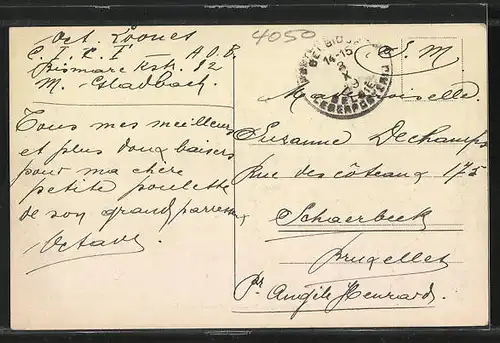 Oct. Loones
C. I. R. I — A.O.B.
Bismarckstr. 92
M. Gladbach
4050
S. M
14-15
8
X
BELGIE
LEGERPOSTERIJ
Tous mes meilleurs
et plus doux baisers
pour ma chère
petite poulette
de son grand
Octave
Mademoiselle
Suzanne Dechamps
Rue des côteaux 175
Schaerbeek
Bruxelles
Pr Angèle Henrard.